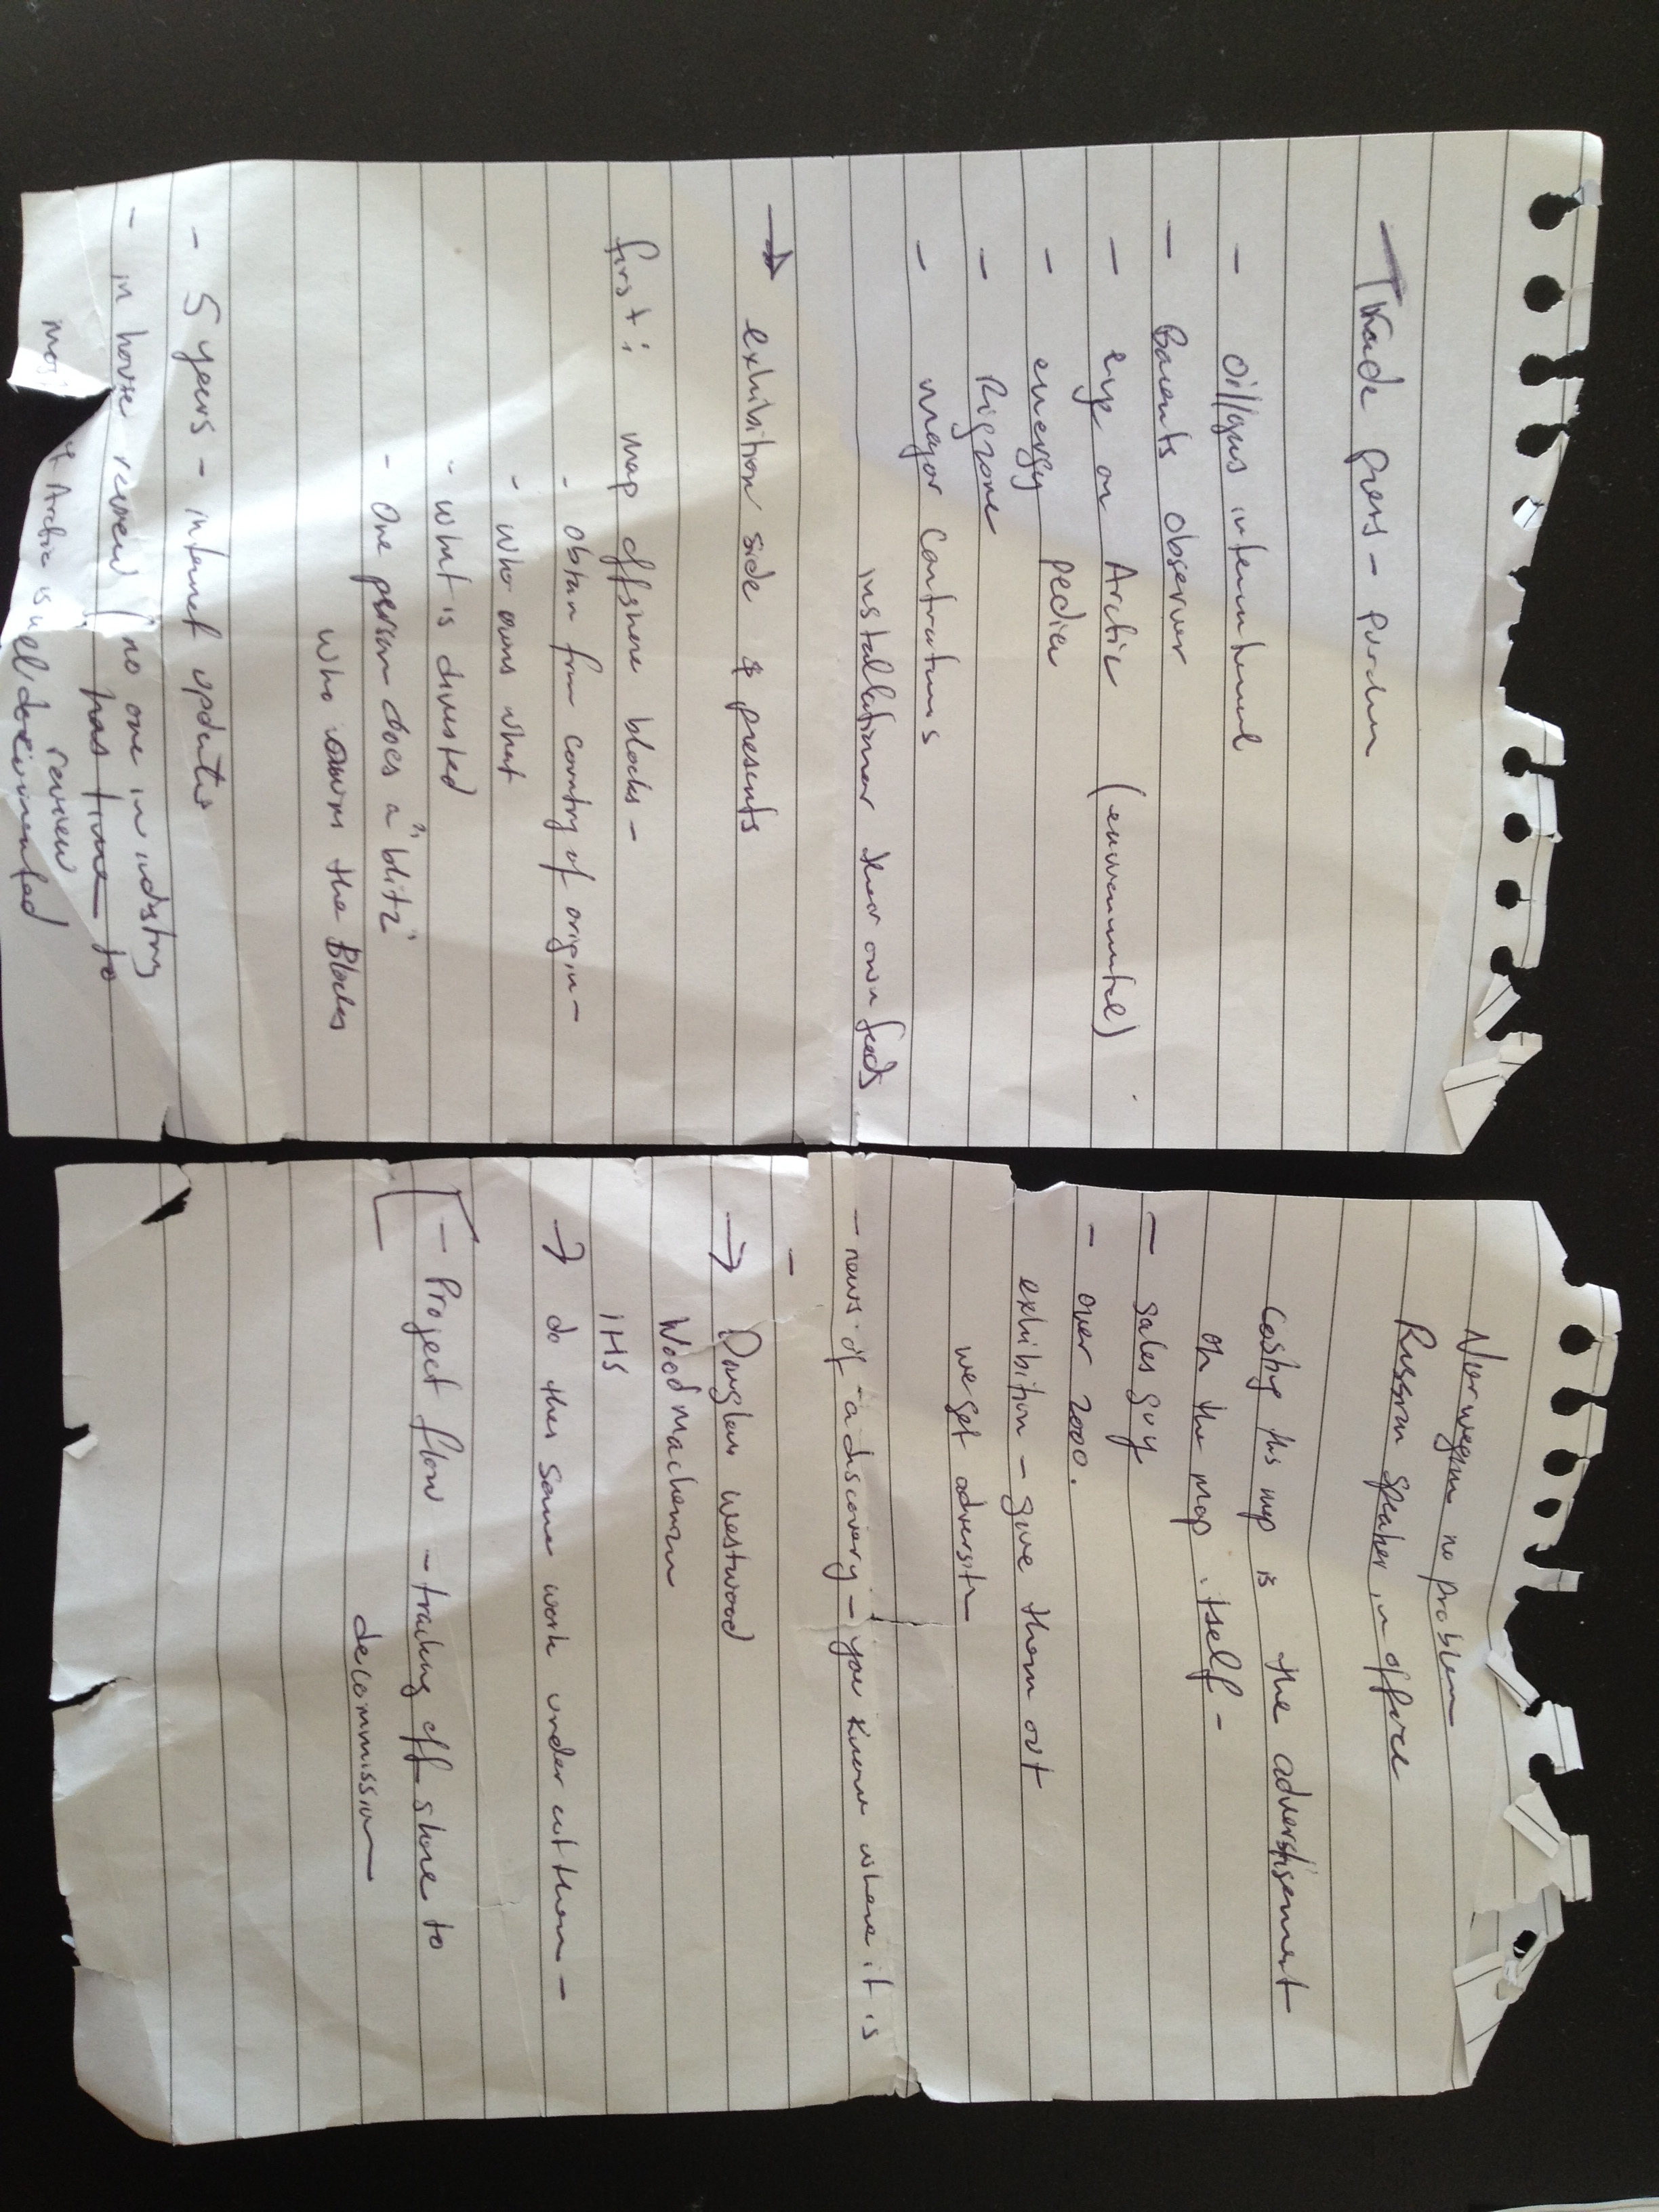 Trade press -
- Oil/gas international
- Barents observer
- eye on Arctic (enviromental)
- energy pedia
- Rigzone
- major Contractors
installationer their own feeds
→ exhibition side & presents
first: map offshore blocks -
- obtain from country of origin -
- who owns what
- what is divested
- One person does a "blitz"
who owns the Blocks
- 5 years - internet updates
- in house review (no one in industry
has time to
review
most of Arctic is well documented
Norwegian no problem
Russian speaker in office
Costing this map is the advertisement
on the map itself -
- Sales guy
- over 2000.
exhibition - give them out
we get
- news of a discovery - you know where it is
-
→ Douglas westwood
Wood Mackenzie
IHS
→ do the same work under cut them -
- Project flow - tracking off shore to
decommission